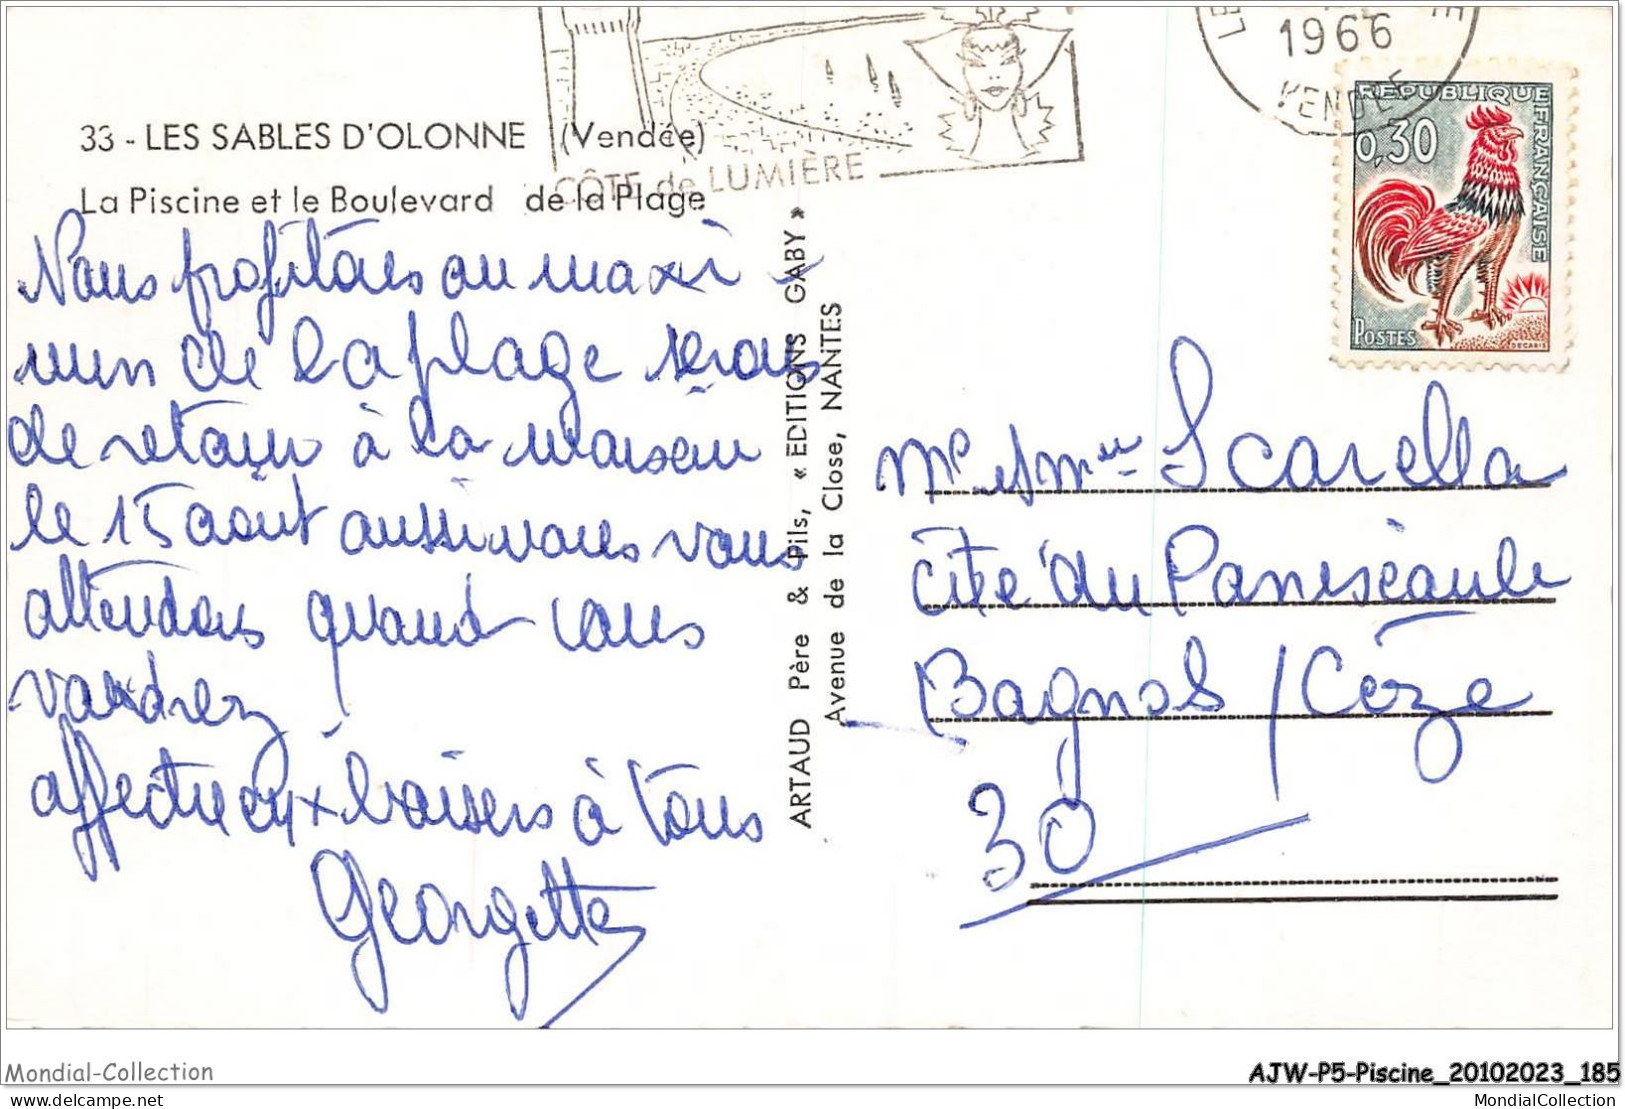 33 - LES SABLES D'OLONNE (Vendée)
La Piscine et le Boulevard de la Plage
CÔTE de LUMIÈRE
1966
VENDÉE
RÉPUBLIQUE FRANÇAISE
0,30
POSTES
DECARIS
Nous profitons au maxi
mum de la plage serons
de retour à la maison
le 15 aout aussi nous vous
attendons quand vous
voudrez
affectueux baisers à tous
Georgette
ARTAUD Père & Fils, « EDITIONS GABY »
Avenue de la Close, NANTES
Mr et Mme Scarella
cité du
Bagnols / Cèze
30
Mondial-Collection
AJW-P5-Piscine_20102023_185
MondialCollection
MondialCollection